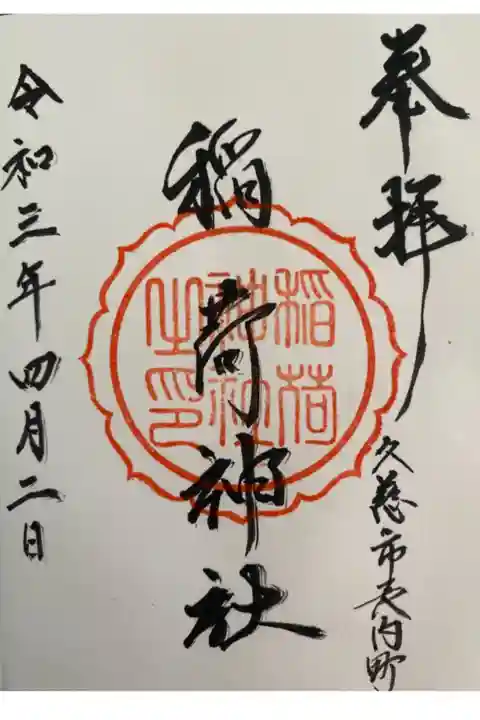 奉拝
久慈市長内町
稲荷神社
稲荷
神社
之印
令和三年四月二日